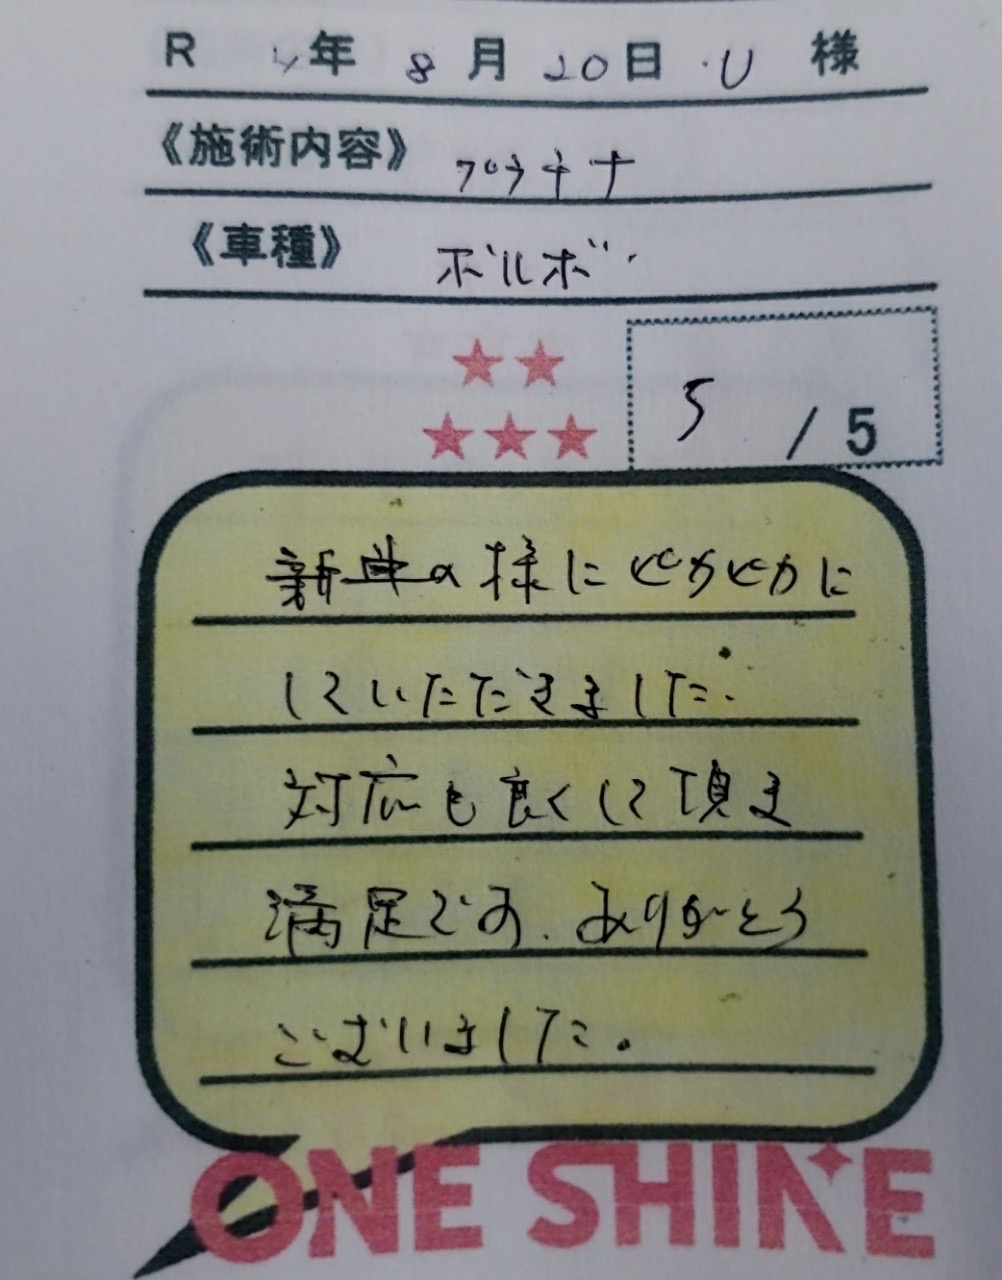 R 4年 8月 20日 ・U 様
《施術内容》 プラチナ
《車種》 ボルボ
★★
★★★
5 / 5
新車の様にピカピカに
していただきました.
対応も良くして頂き
満足です. ありがとう
ございました.
ONE SHINE